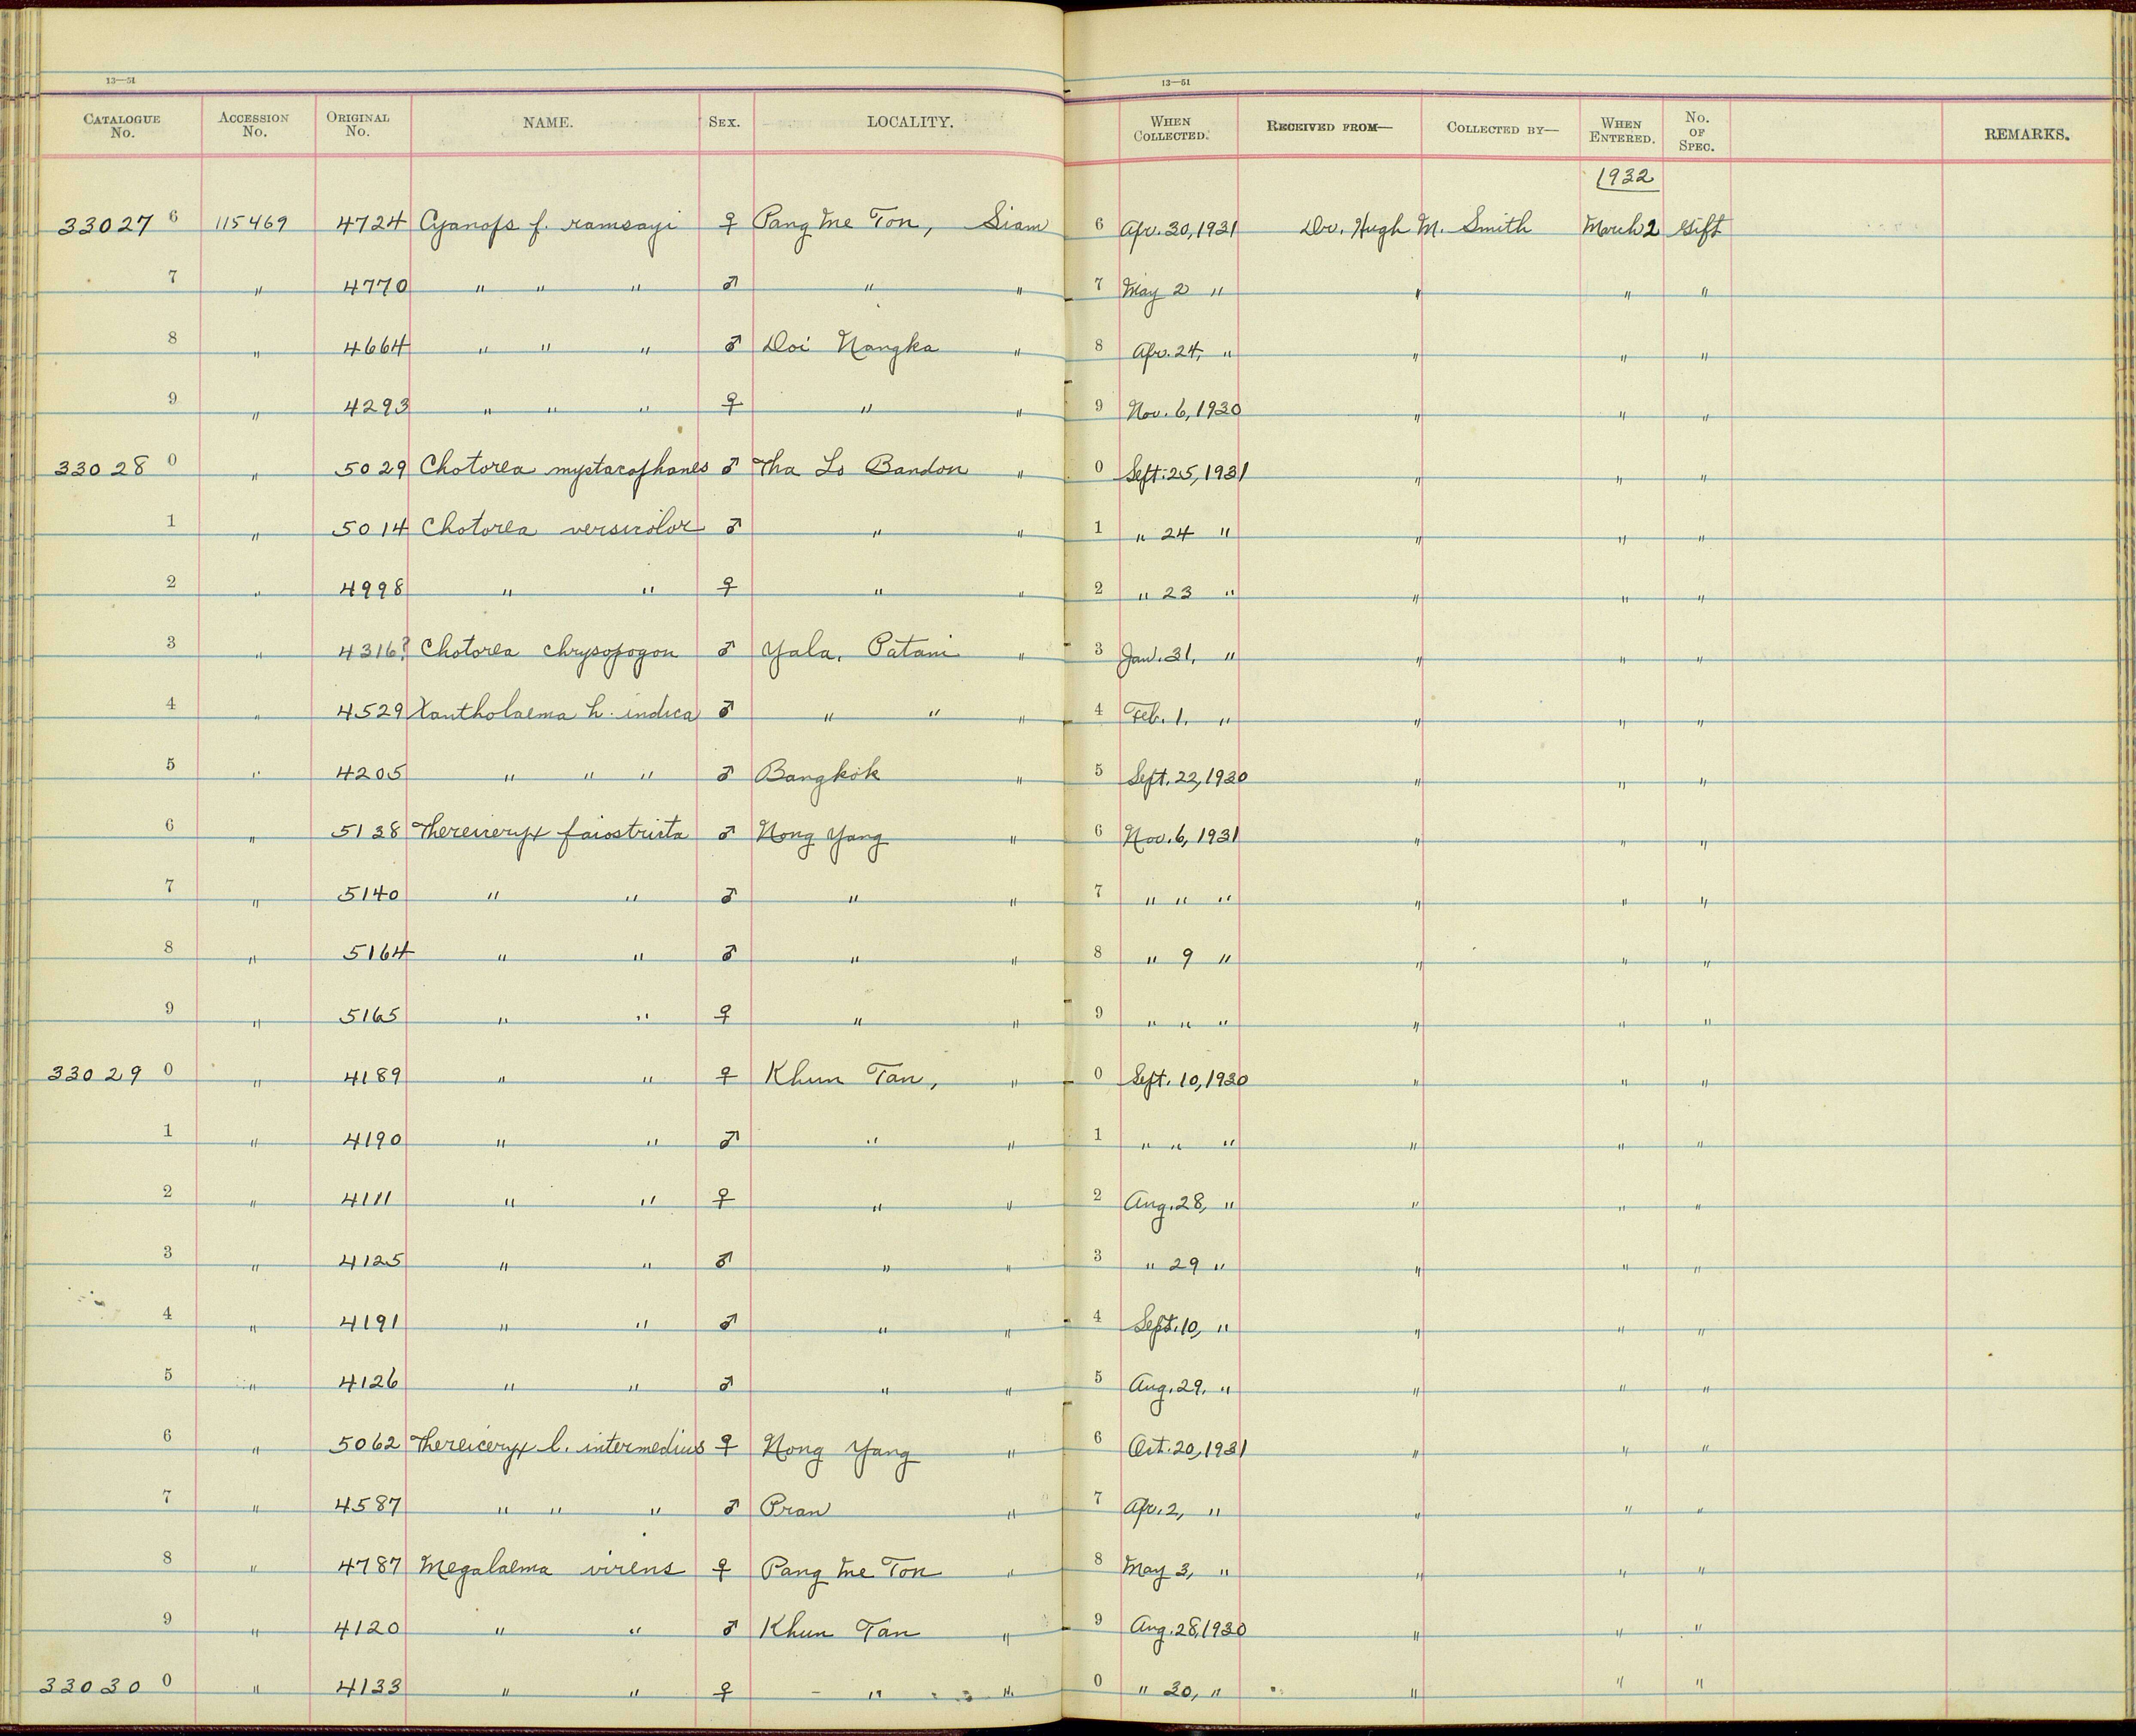 13—51 13—51
CATALOGUE No. ACCESSION No. ORIGINAL No. NAME. SEX. LOCALITY. WHEN COLLECTED. RECEIVED FROM— COLLECTED BY— WHEN ENTERED. No. OF SPEC. REMARKS.
1932
33027 6 115469 4724 Cyanops f. ramsayi ♀ Pang Me Ton, Siam 6 Apr. 30, 1931 Dr. Hugh M. Smith March 2 Gift
7 " 4770 " " " ♂ " " 7 May 2 " " " "
8 " 4664 " " " ♂ Doi Nangka " 8 Apr. 24, " " " "
9 " 4293 " " " ♀ " " 9 Nov. 6, 1930 " " "
33028 0 " 5029 Chotorea mystacophanes ♂ Tha Lo Bandon " 0 Sept. 25, 1931 " " "
1 " 5014 Chotorea versicolor ♂ " " 1 " 24 " " " "
2 " 4998 " " ♀ " " 2 " 23 " " " "
3 " 4316? Chotorea chrysopogon ♂ Yala, Patani " 3 Jan. 31, " " " "
4 " 4529 Xantholaema h. indica ♂ " " " 4 Feb. 1, " " " "
5 " 4205 " " " ♂ Bangkok " 5 Sept. 22, 1930 " " "
6 " 5138 Thereiceryx faiostricta ♂ Nong Yang " 6 Nov. 6, 1931 " " "
7 " 5140 " " ♂ " " 7 " " " " " "
8 " 5164 " " ♂ " " 8 " 9 " " " "
9 " 5165 " " ♀ " " 9 " " " " " "
33029 0 " 4189 " " ♀ Khun Tan, " 0 Sept. 10, 1930 " " "
1 " 4190 " " ♂ " " 1 " " " " " "
2 " 4111 " " ♀ " " 2 Aug. 28, " " " "
3 " 4125 " " ♂ " " 3 " 29 " " " "
4 " 4191 " " ♂ " " 4 Sept. 10, " " " "
5 " 4126 " " ♂ " " 5 Aug. 29, " " " "
6 " 5062 Thereiceryx l. intermedius ♀ Nong Yang " 6 Oct. 20, 1931 " " "
7 " 4587 " " " ♂ Pran " 7 Apr. 2, " " " "
8 " 4787 Megalaema virens ♀ Pang Me Ton " 8 May 3, " " " "
9 " 4120 " " ♂ Khun Tan " 9 Aug. 28, 1930 " " "
33030 0 " 4133 " " ♀ " " 0 " 30, " " " "